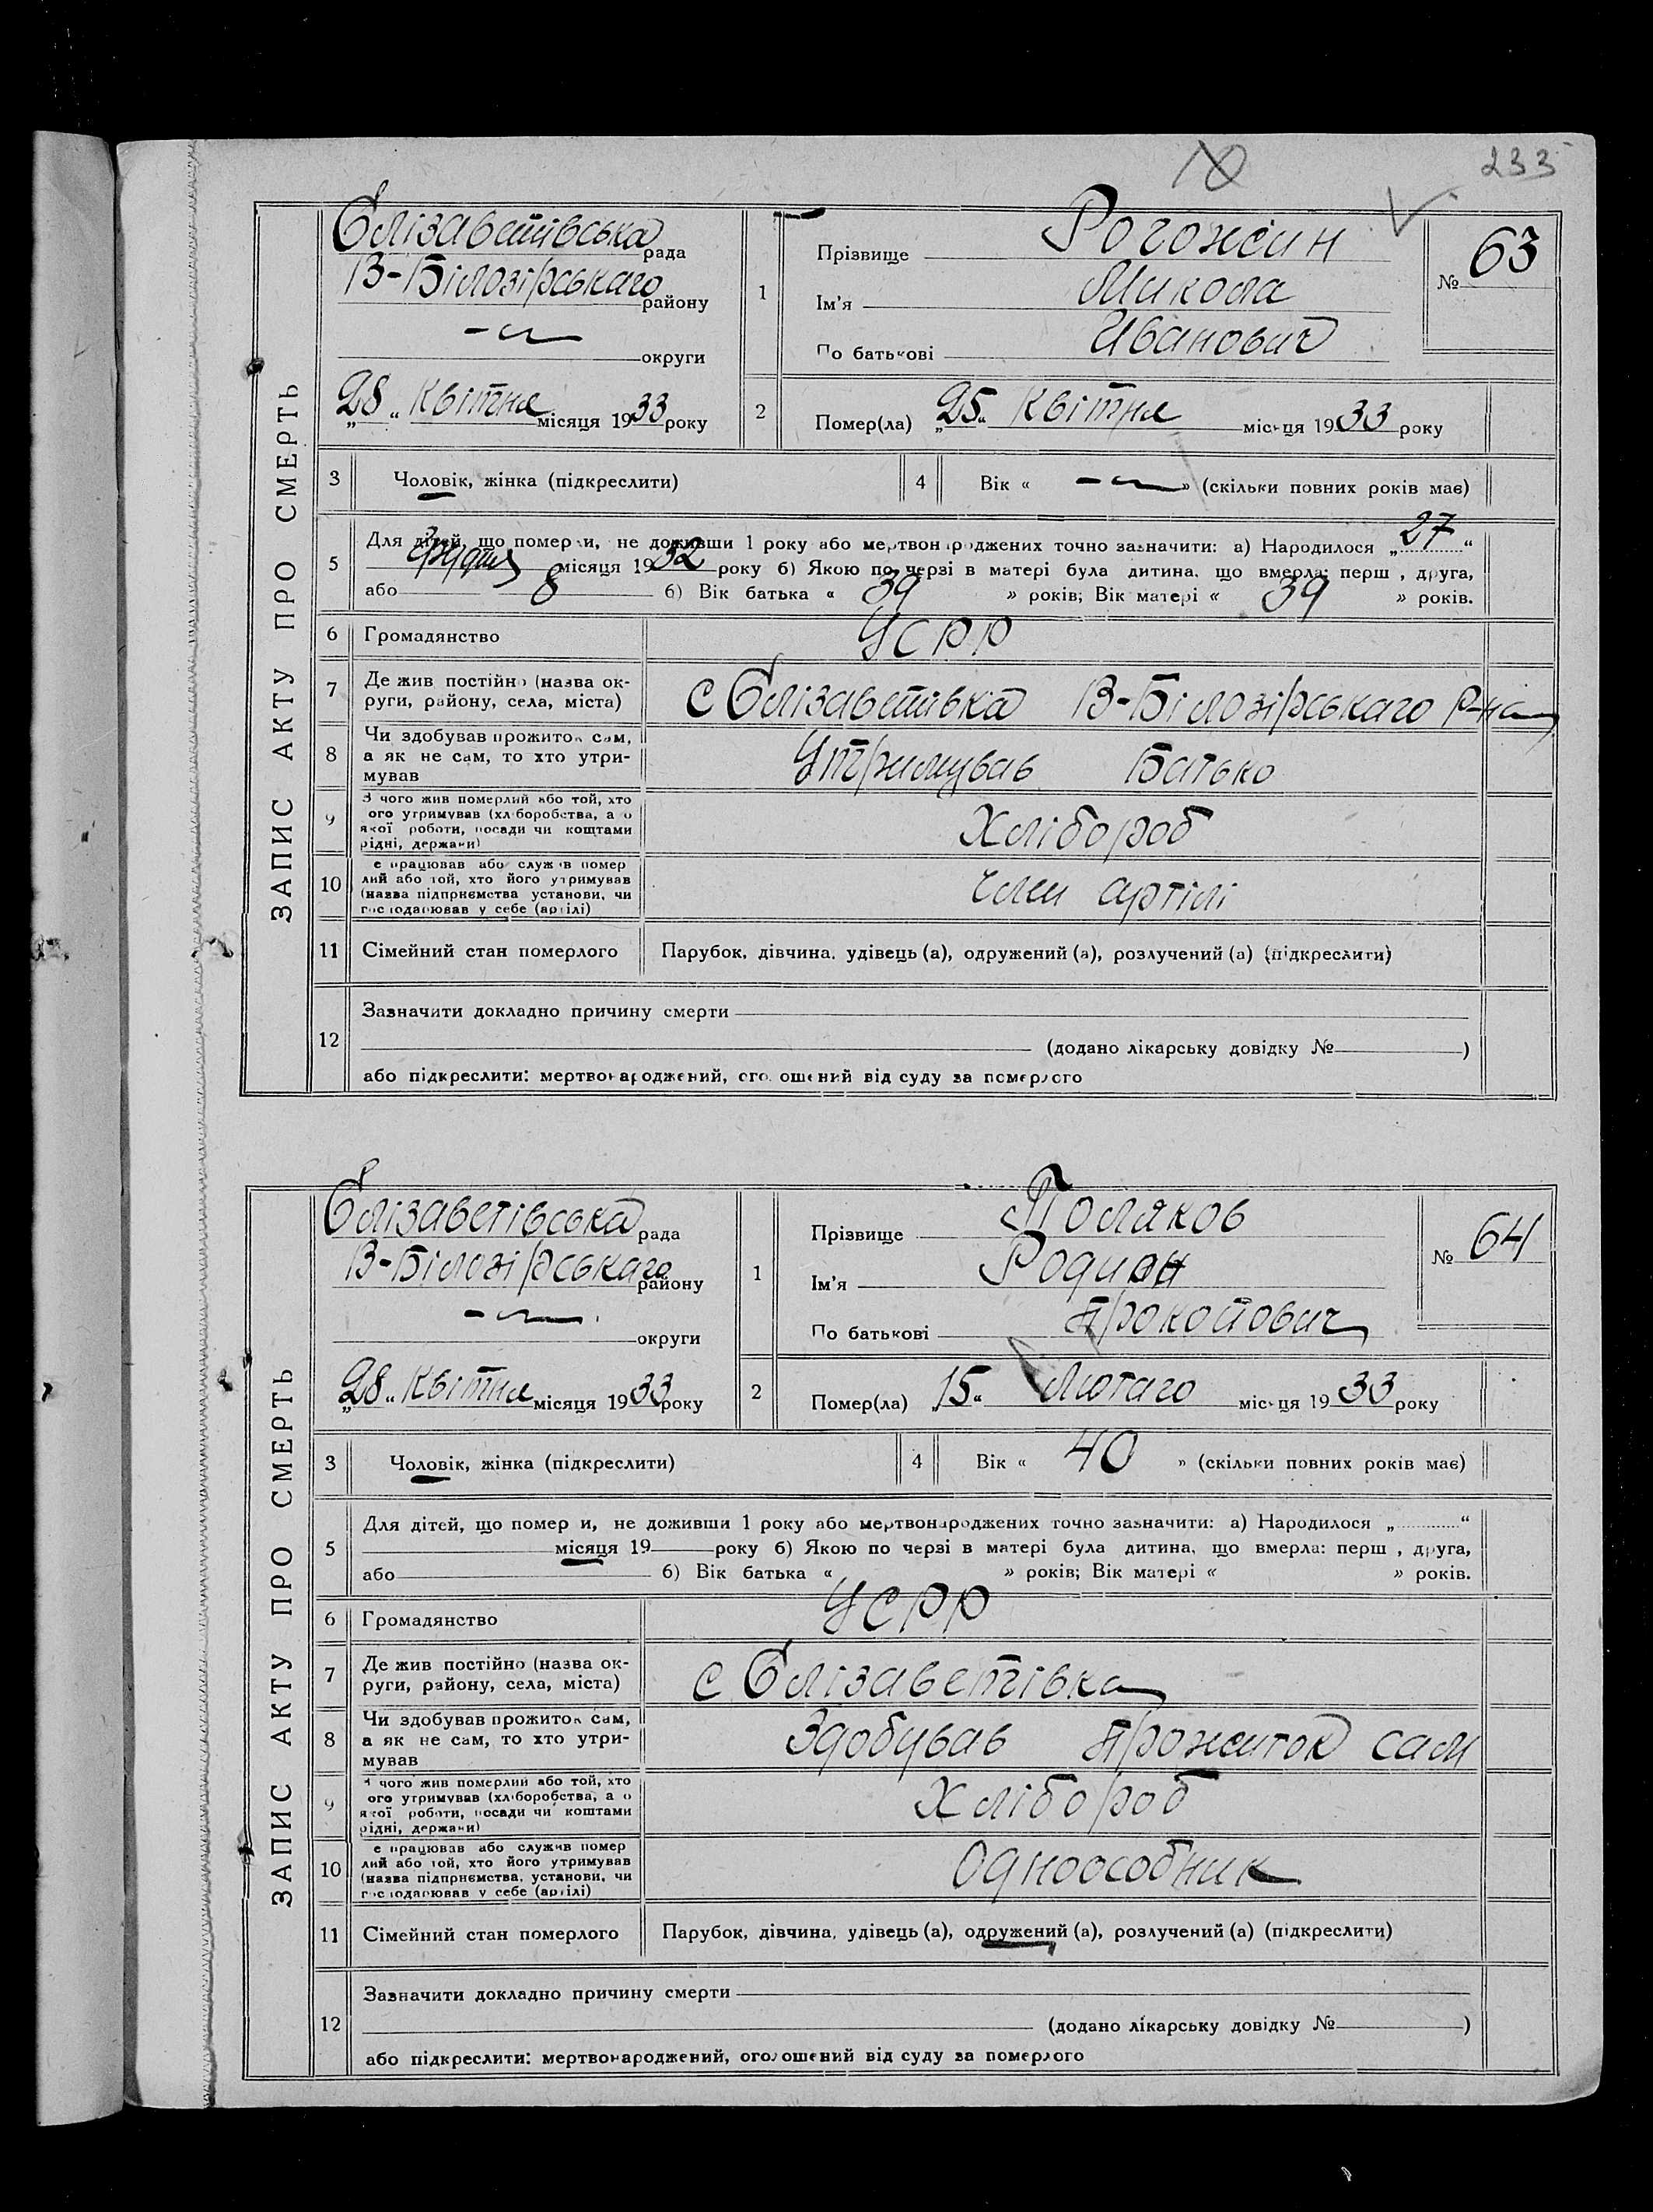 233
ЗАПИС АКТУ ПРО СМЕРТЬ
Єлізаветівська рада
В-Білозірського району
округи
„28“ квітня місяця 1933 року
1
Прізвище Рогожин
Ім'я Микола
По батькові Иванович
№ 63
2
Помер(ла) „25“ квітня місяця 1933 року
3 Чоловік, жінка (підкреслити)
4 Вік « — » (скільки повних років має)
5 Для дітей, що померли, не доживши 1 року або мертвонароджених точно зазначити: а) Народилося „27“
Грудня місяця 1932 року б) Якою по черзі в матері була дитина, що вмерла: перш , друга,
або 8 б) Вік батька « 39 » років; Вік матері « 39 » років.
6 Громадянство УСРР
7 Де жив постійно (назва ок-
руги, району, села, міста) с Єлізаветівка В-Білозірського р-на
8 Чи здобував прожиток сам,
а як не сам, то хто утри-
мував Утримував Батько
9 З чого жив померлий або той, хто
ого утримував (хліборобства, а о
якої роботи, посади чи коштами
рідні, держави) Хлібороб
10 е працював або служив помер
лий або той, хто його утримував
(назва підприємства установи, чи
господарював у себе (артілі) член артілі
11 Сімейний стан померлого Парубок, дівчина, удівець (а), одружений (а), розлучений (а) (підкреслити)
12 Зазначити докладно причину смерти
(додано лікарську довідку № )
або підкреслити: мертвонароджений, оголошений від суду за померлого
ЗАПИС АКТУ ПРО СМЕРТЬ
Єлізаветівська рада
В-Білозірського району
округи
„28“ квітня місяця 1933 року
1
Прізвище Поляков
Ім'я Родион
По батькові Прокопович
№ 64
2
Помер(ла) „15“ Лютаго місяця 1933 року
3 Чоловік, жінка (підкреслити)
4 Вік « 40 » (скільки повних років має)
5 Для дітей, що помер и, не доживши 1 року або мертвонароджених точно зазначити: а) Народилося „ “
місяця 19 року б) Якою по черзі в матері була дитина, що вмерла: перш , друга,
або б) Вік батька « » років; Вік матері « » років.
6 Громадянство УСРР
7 Де жив постійно (назва ок-
руги, району, села, міста) с Єлізаветівка
8 Чи здобував прожиток сам,
а як не сам, то хто утри-
мував Здобував прожиток сам
9 З чого жив померлий або той, хто
ого утримував (хліборобства, а о
якої роботи, посади чи коштами
рідні, держави) Хлібороб
10 е працював або служив помер
лий або той, хто його утримував
(назва підприємства, установи, чи
господарював у себе (артілі) Одноособник
11 Сімейний стан померлого Парубок, дівчина, удівець (а), одружений (а), розлучений (а) (підкреслити)
12 Зазначити докладно причину смерти
(додано лікарську довідку № )
або підкреслити: мертвонароджений, оголошений від суду за померлого